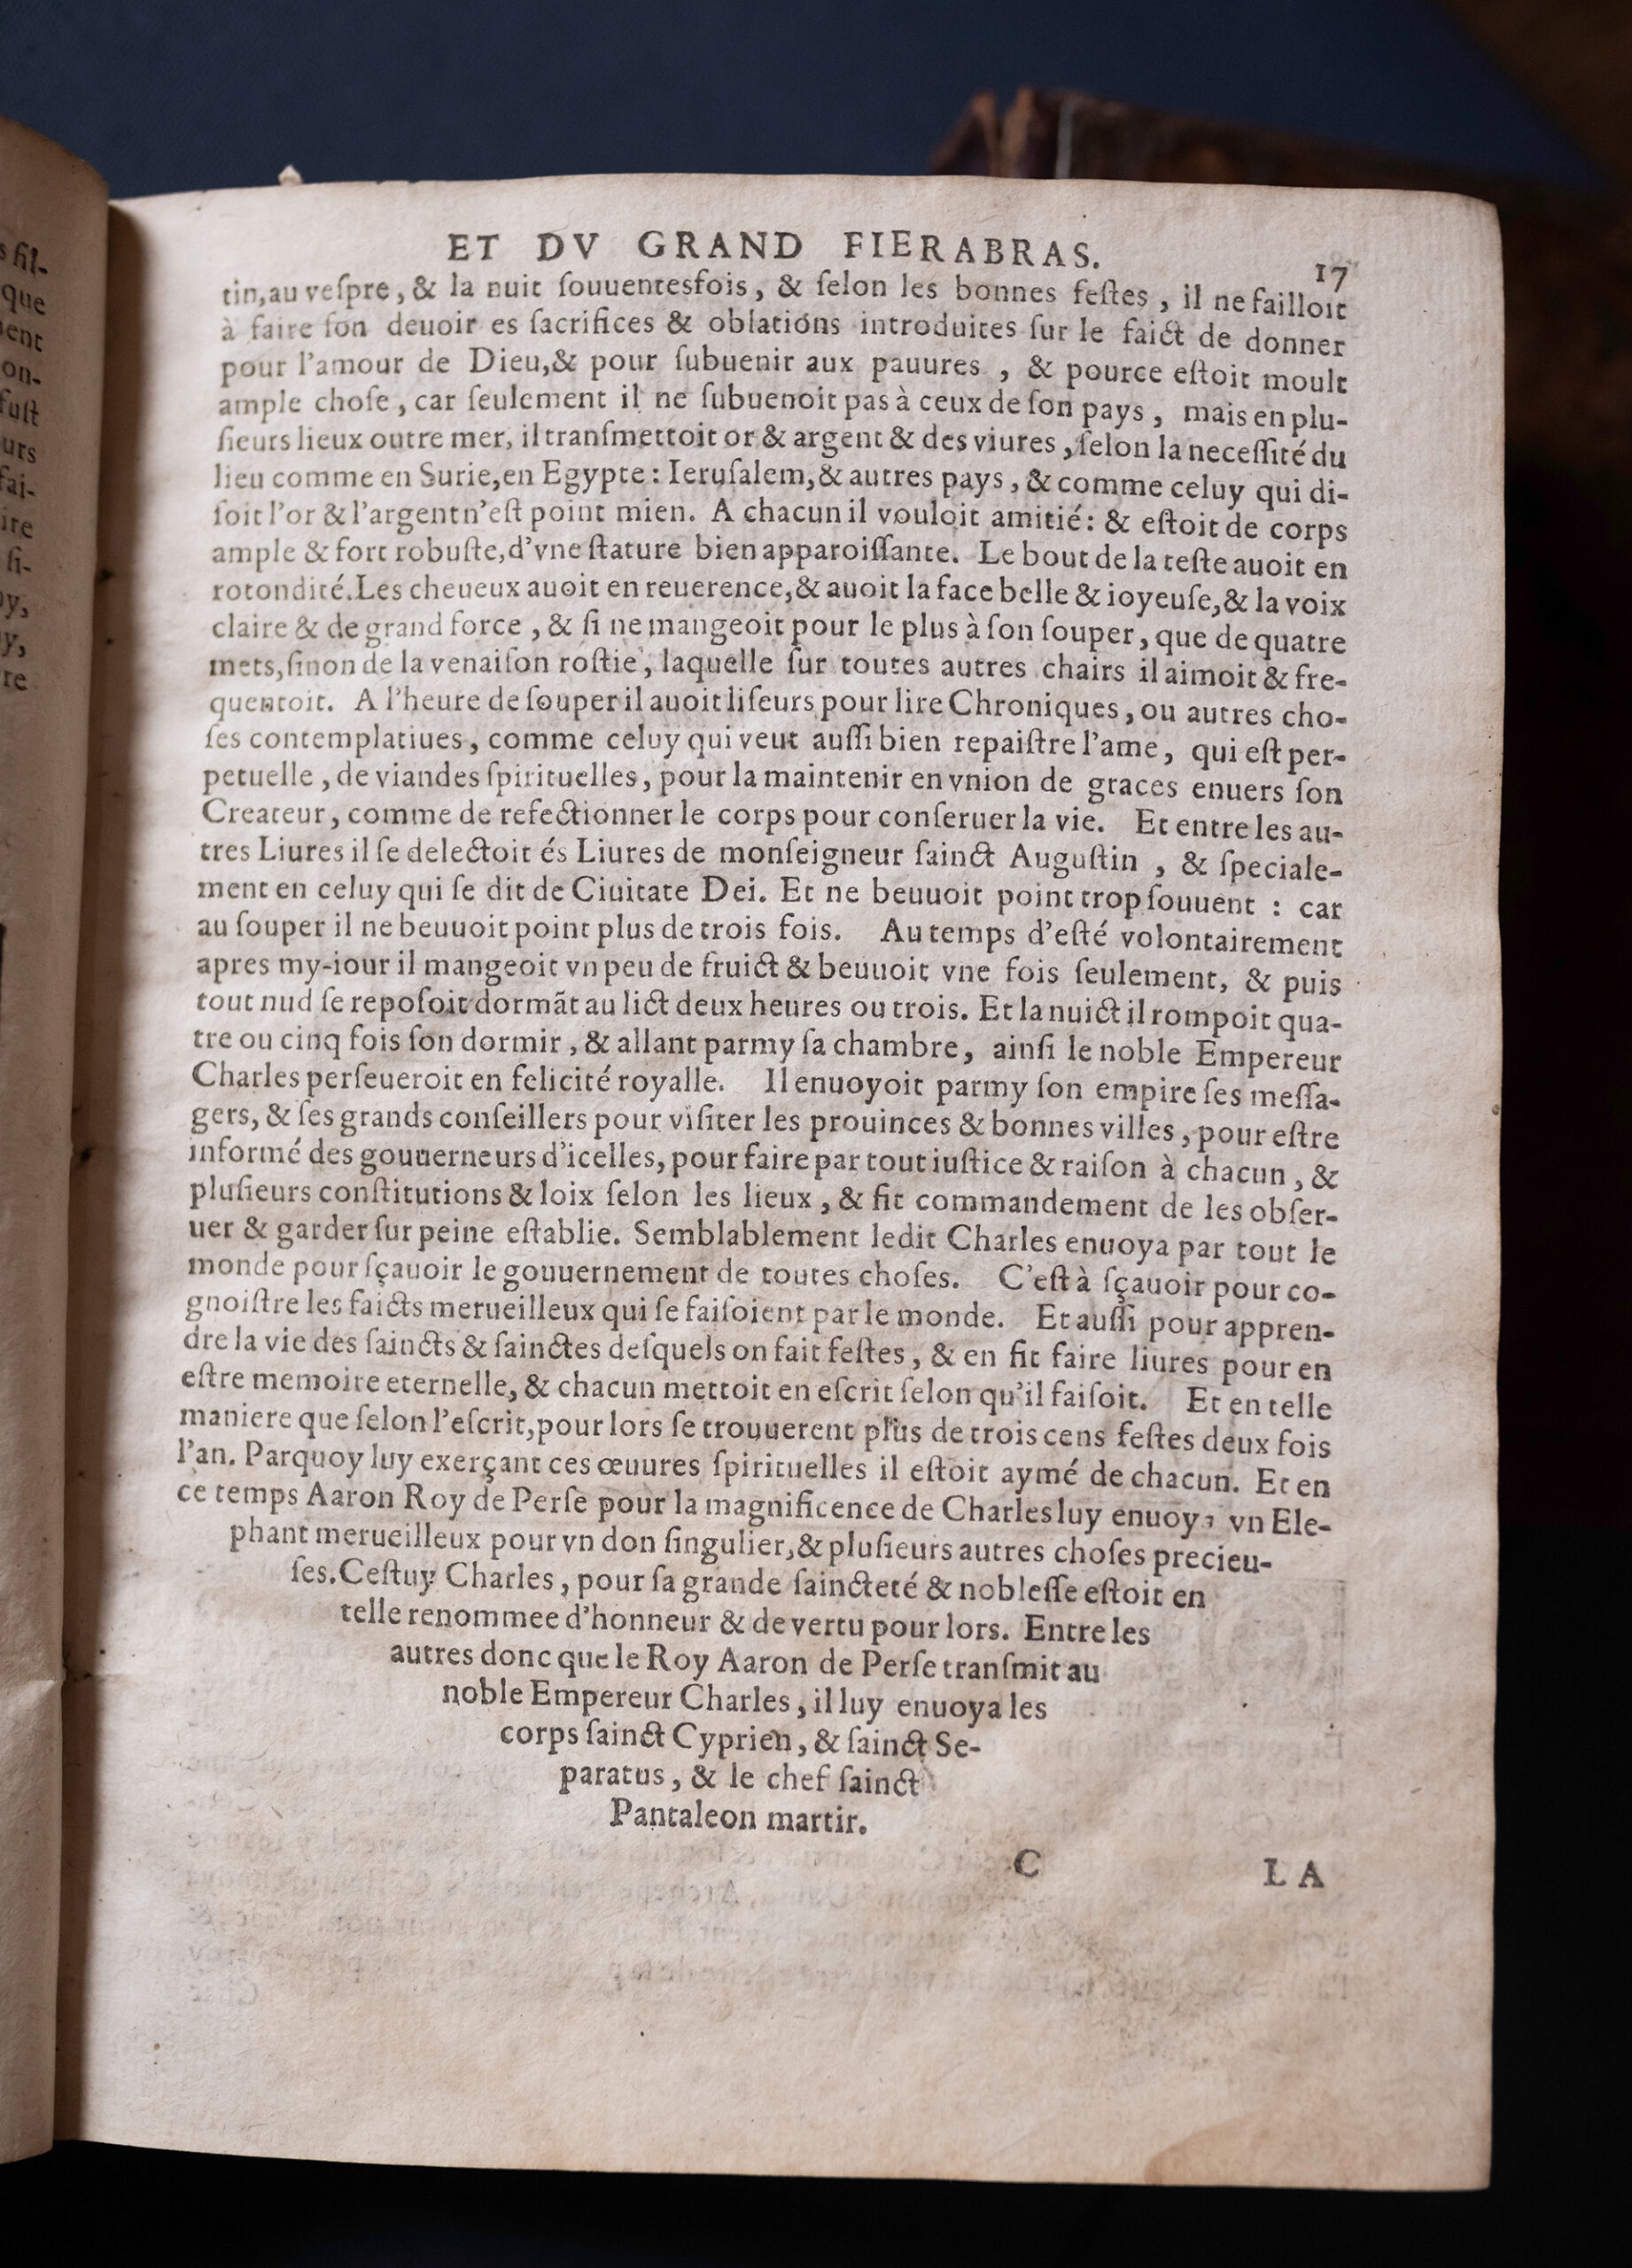 s ſil-
que
ent
on-
fuſt
urs
fai-
ire
ſi-
oy,
y,
re
ET DV GRAND FIERABRAS.
17
tin,au veſpre, & la nuit ſouuentesfois, & ſelon les bonnes feſtes, il ne failloit
à faire ſon deuoir es ſacrifices & oblations introduites ſur le faict de donner
pour l'amour de Dieu,& pour ſubuenir aux pauures, & pource eſtoit moult
ample choſe, car ſeulement il ne ſubuenoit pas à ceux de ſon pays, mais en plu-
ſieurs lieux outre mer, il tranſmettoit or & argent & des viures, ſelon la neceſſité du
lieu comme en Surie,en Egypte: Ieruſalem,& autres pays, & comme celuy qui di-
ſoit l'or & l'argent n'eſt point mien. A chacun il vouloit amitié: & eſtoit de corps
ample & fort robuſte,d'vne ſtature bien apparoiſſante. Le bout de la teſte auoit en
rotondité.Les cheueux auoit en reuerence,& auoit la face belle & ioyeuſe,& la voix
claire & de grand force, & ſi ne mangeoit pour le plus à ſon ſouper, que de quatre
mets,ſinon de la venaiſon roſtie, laquelle ſur toutes autres chairs il aimoit & fre-
quentoit. A l'heure de ſouper il auoit liſeurs pour lire Chroniques, ou autres cho-
ſes contemplatiues, comme celuy qui veut auſſi bien repaiſtre l'ame, qui eſt per-
petuelle, de viandes ſpirituelles, pour la maintenir en vnion de graces enuers ſon
Createur, comme de refectionner le corps pour conſeruer la vie. Et entre les au-
tres Liures il ſe delectoit és Liures de monſeigneur ſainct Auguſtin, & ſpeciale-
ment en celuy qui ſe dit de Ciuitate Dei. Et ne beuuoit point trop ſouuent : car
au ſouper il ne beuuoit point plus de trois fois. Au temps d'eſté volontairement
apres my-iour il mangeoit vn peu de fruict & beuuoit vne fois ſeulement, & puis
tout nud ſe repoſoit dormãt au lict deux heures ou trois. Et la nuict il rompoit qua-
tre ou cinq fois ſon dormir, & allant parmy ſa chambre, ainſi le noble Empereur
Charles perſeueroit en felicité royalle. Il enuoyoit parmy ſon empire ſes meſſa-
gers, & ſes grands conſeillers pour viſiter les prouinces & bonnes villes, pour eſtre
informé des gouuerneurs d'icelles, pour faire par tout iuſtice & raiſon à chacun, &
pluſieurs conſtitutions & loix ſelon les lieux, & fit commandement de les obſer-
uer & garder ſur peine eſtablie. Semblablement ledit Charles enuoya par tout le
monde pour ſçauoir le gouuernement de toutes choſes. C'eſt à ſçauoir pour co-
gnoiſtre les faicts merueilleux qui ſe faiſoient par le monde. Et auſſi pour appren-
dre la vie des ſaincts & ſainctes deſquels on fait feſtes, & en fit faire liures pour en
eſtre memoire eternelle, & chacun mettoit en eſcrit ſelon qu'il faiſoit. Et en telle
maniere que ſelon l'eſcrit,pour lors ſe trouuerent plus de trois cens feſtes deux fois
l'an. Parquoy luy exerçant ces œuures ſpirituelles il eſtoit aymé de chacun. Et en
ce temps Aaron Roy de Perſe pour la magnificence de Charles luy enuoya vn Ele-
phant merueilleux pour vn don ſingulier,& pluſieurs autres choſes precieu-
ſes.Ceſtuy Charles, pour ſa grande ſaincteté & nobleſſe eſtoit en
telle renommee d'honneur & de vertu pour lors. Entre les
autres donc que le Roy Aaron de Perſe tranſmit au
noble Empereur Charles, il luy enuoya les
corps ſainct Cyprien, & ſainct Se-
paratus, & le chef ſainct
Pantaleon martir.
C
LA